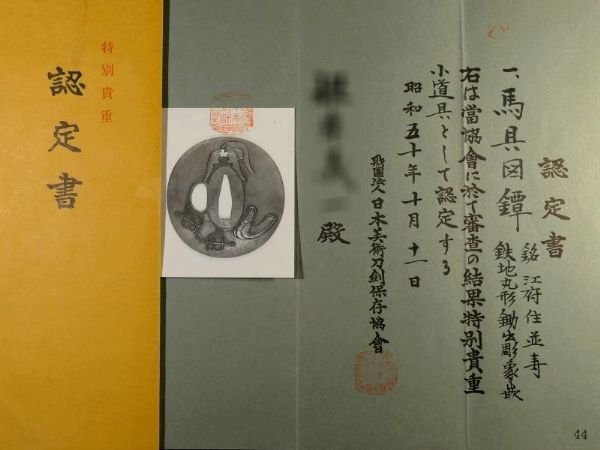 特別貴重
認定書
認定書
一、馬具図鐔
銘 江府住並寿
鉄地丸形鋤出彫象嵌
右は當協會に於て審査の結果特別貴重
小道具として認定する
昭和五十年十月十一日
財團法人日本美術刀剣保存協會
殿
44